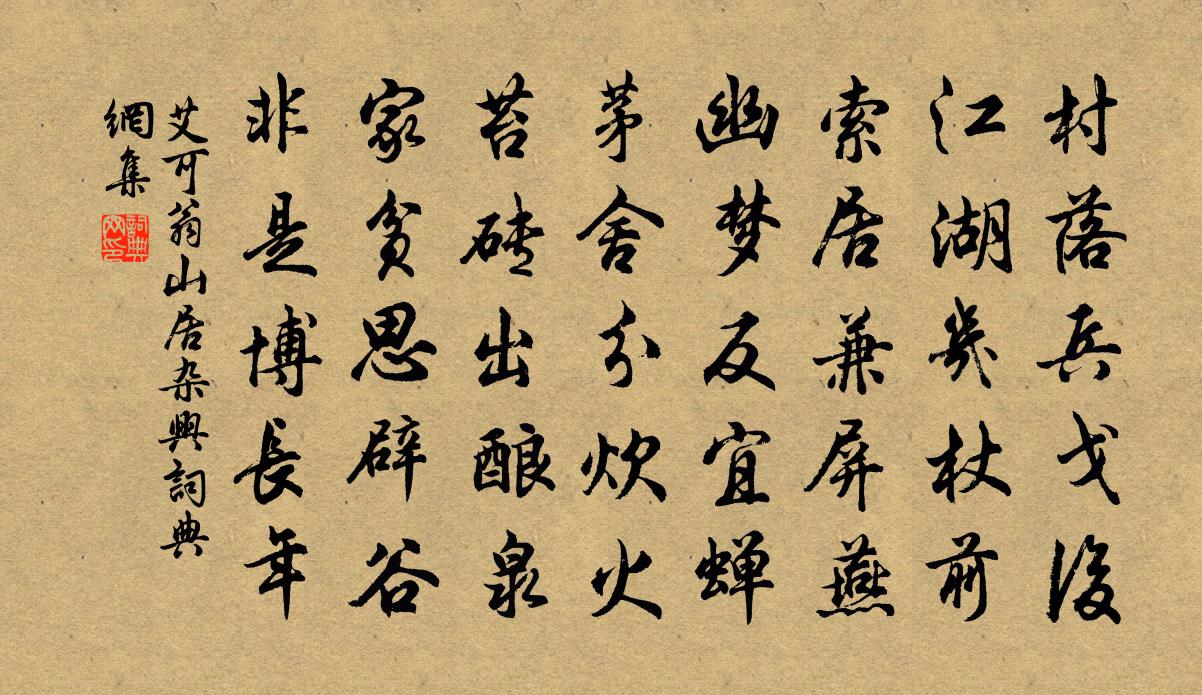 村落兵戈後
江湖几杖前
索居兼屏燕
幽梦反宜蝉
茅舍分炊火
苔砖出酿泉
家贫思辟谷
非是博長年
艾可翁山居杂興詞典
網集
詞典
网印